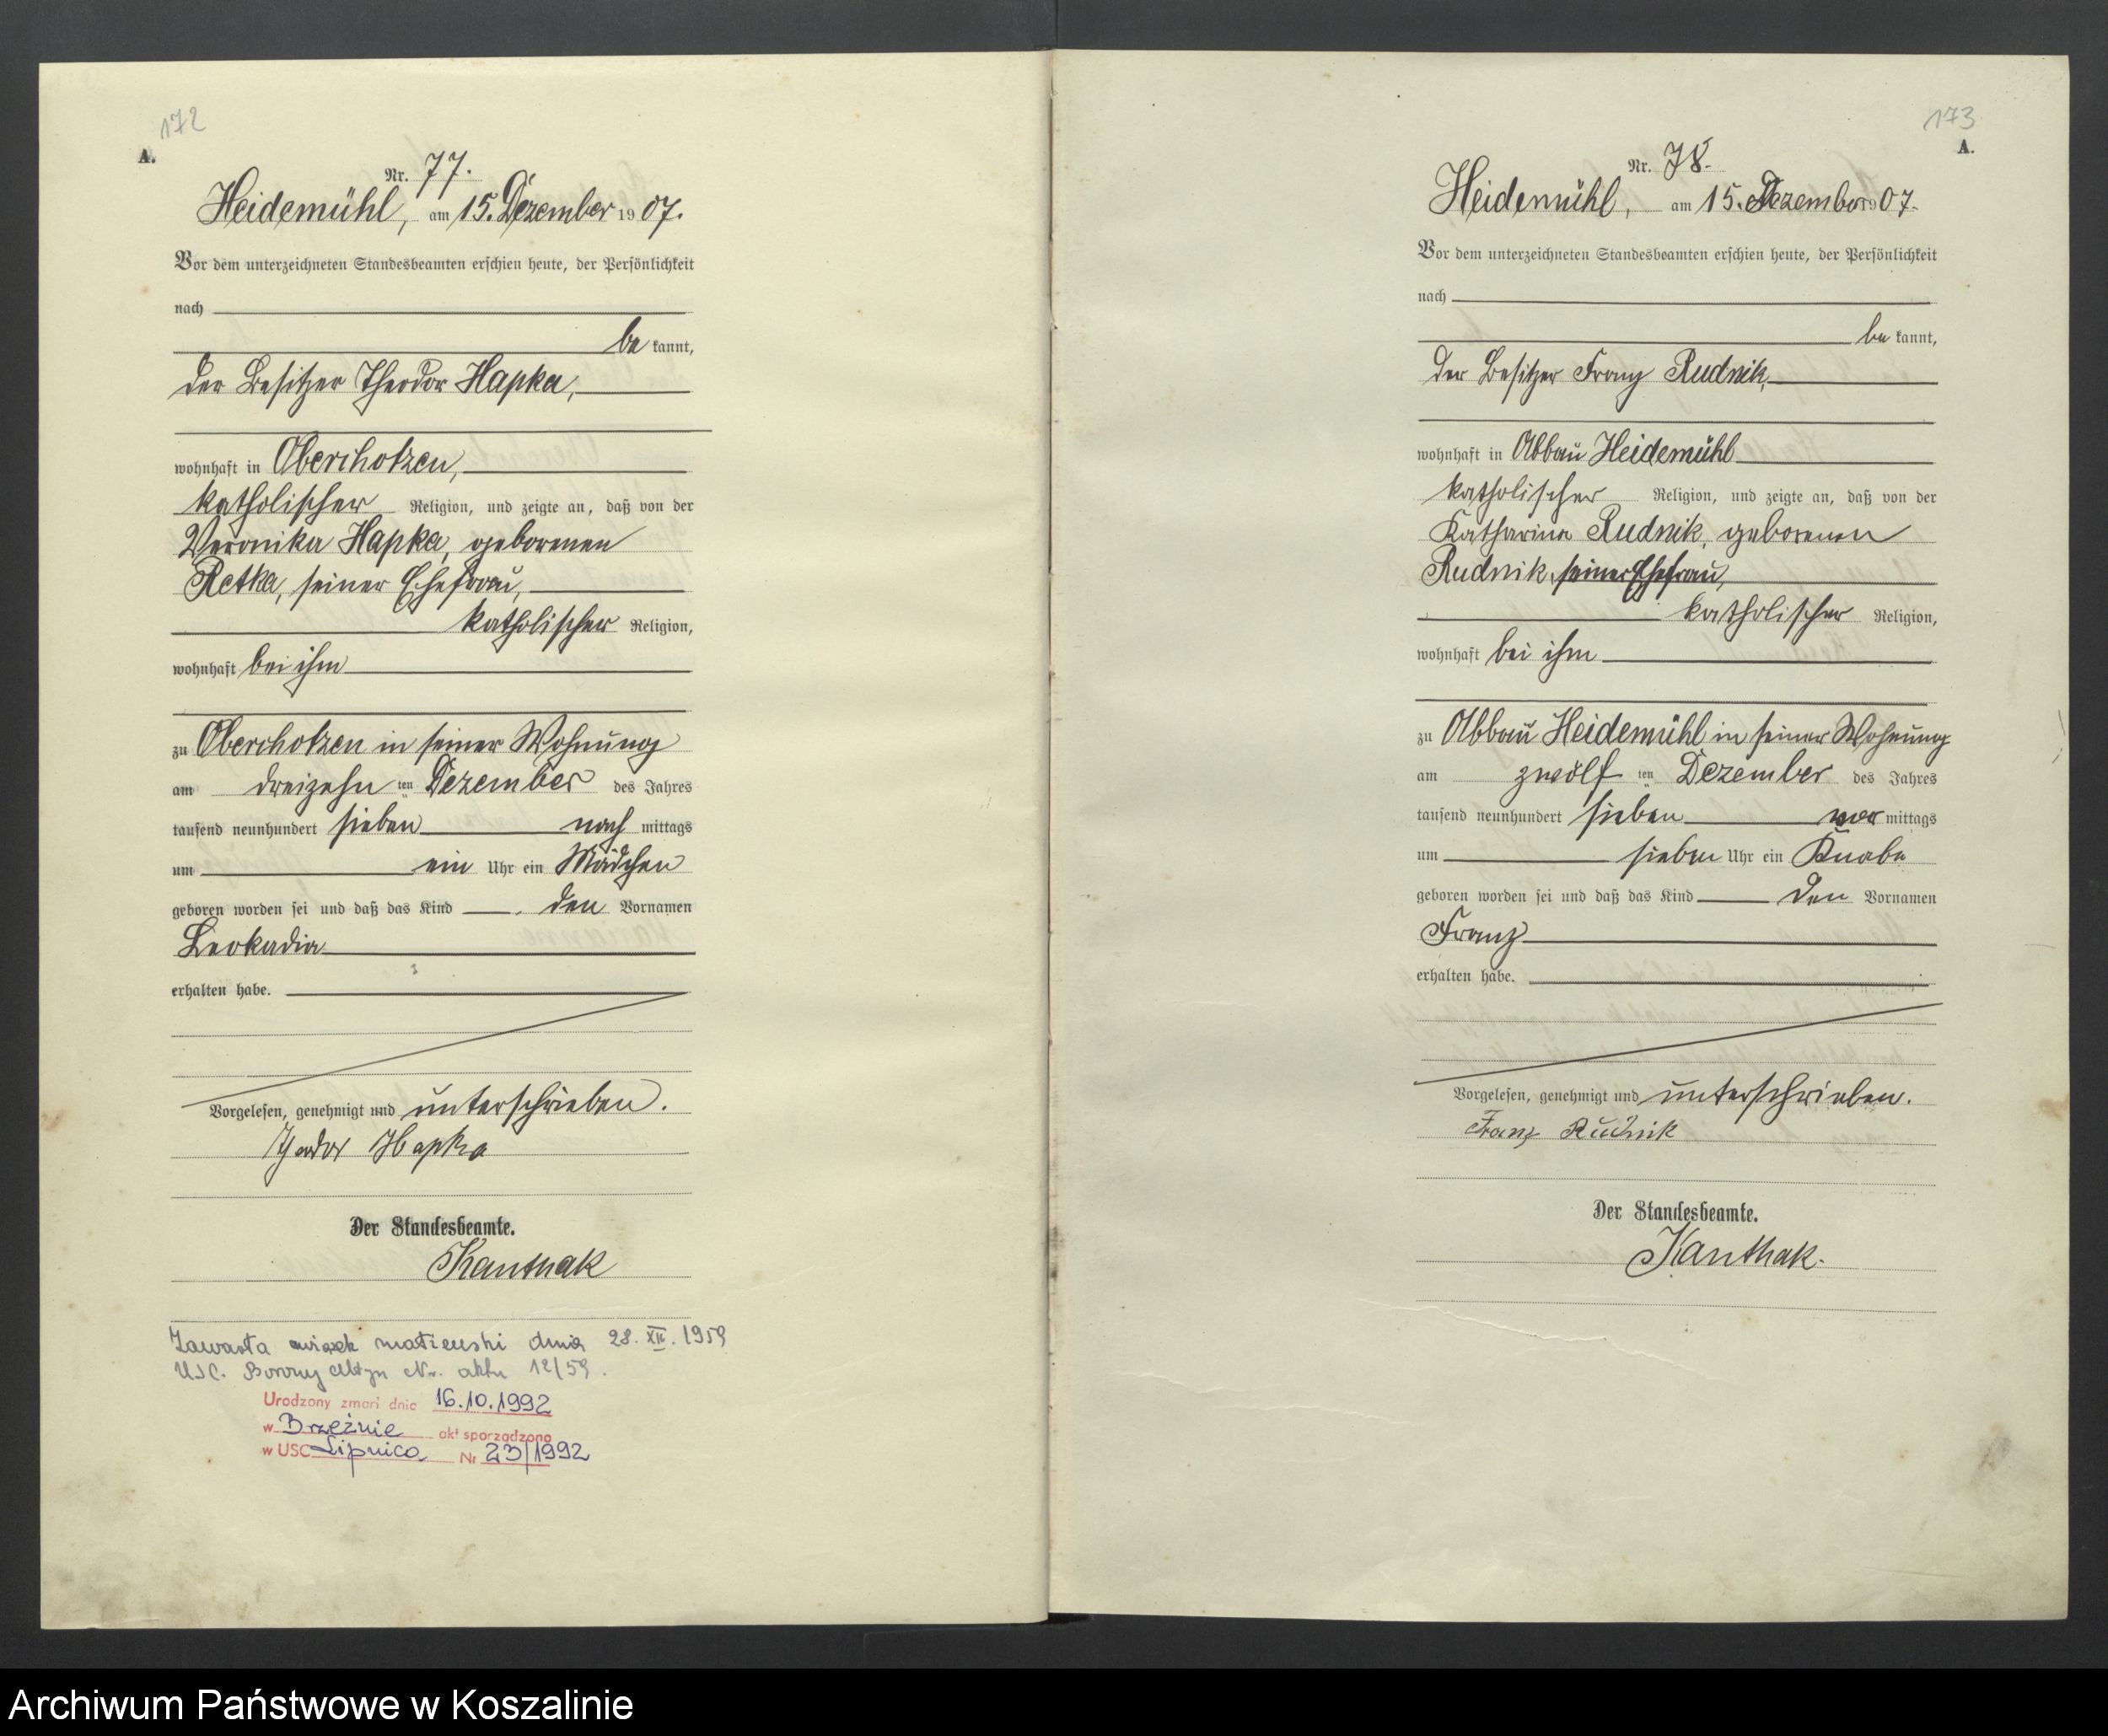 172
A.
Nr. 77.
Heidemühl, am 15. Dezember 1907.
Vor dem unterzeichneten Standesbeamten erschien heute, der Persönlichkeit
nach
be kannt,
der Besitzer Theodor Hapka,
wohnhaft in Oberchotzen,
katholischer Religion, und zeigte an, daß von der
Veronika Hapka, geborenen
Retka, seiner Ehefrau,
katholischer Religion,
wohnhaft bei ihm
zu Oberchotzen in seiner Wohnung
am dreizehn ten Dezember des Jahres
tausend neunhundert sieben nach mittags
um ein Uhr ein Mädchen
geboren worden sei und daß das Kind den Vornamen
Leokadia
erhalten habe.
Vorgelesen, genehmigt und unterschrieben.
Theodor Hapka
Der Standesbeamte.
Kanthak
Zawarła związek małżeński dnia 28. XII. 1959
USC. Borowy Młyn Nr. aktu 12/59.
Urodzony zmarł dnia 16.10.1992
w Brzeźnie akt sporządzono
w USC Lipnica Nr 23/1992
173
A.
Nr. 78.
Heidemühl, am 15. Dezember 1907.
Vor dem unterzeichneten Standesbeamten erschien heute, der Persönlichkeit
nach
be kannt,
der Besitzer Franz Rudnik,
wohnhaft in Abbau Heidemühl
katholischer Religion, und zeigte an, daß von der
Katharina Rudnik, geborenen
Rudnik, seiner Ehefrau,
katholischer Religion,
wohnhaft bei ihm
zu Abbau Heidemühl in seiner Wohnung
am zwölf ten Dezember des Jahres
tausend neunhundert sieben vor mittags
um sieben Uhr ein Knabe
geboren worden sei und daß das Kind den Vornamen
Franz
erhalten habe.
Vorgelesen, genehmigt und unterschrieben.
Franz Rudnik
Der Standesbeamte.
Kanthak.
Archiwum Państwowe w Koszalinie